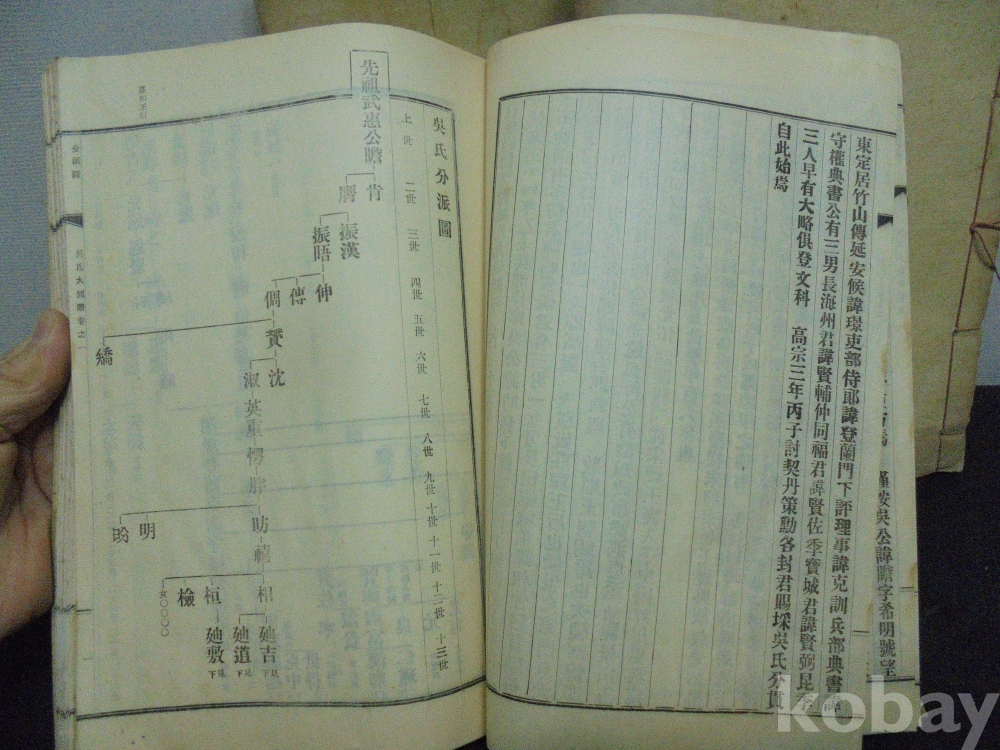 謹按吳公諱瞻字希明號望
東定居竹山傳延安候諱璟吏部侍郎諱登蘭門下評理事諱克訓兵部典書諱
守權典書公有三男長海州君諱賢輔仲同福君諱賢佐季寶城君諱賢弼昆季
三人早有大略俱登文科 高宗三年丙子討契丹策勳各封君賜埰吳氏分貫
自此始焉
吳氏分派圖
上世 二世 三世 四世 五世 六世 七世 八世 九世 十世 十一世 十二世 十三世
先祖武惠公瞻
肯
膺
振漢
振晤
伸
傅
倜
贇
矯
沈
淑
英軍
愕
胖
昉
明
盼
禧
相
桓
檢
女〇〇〇〇
廸吉
廸道
見下
廸敷
見下
分派圖
kobay